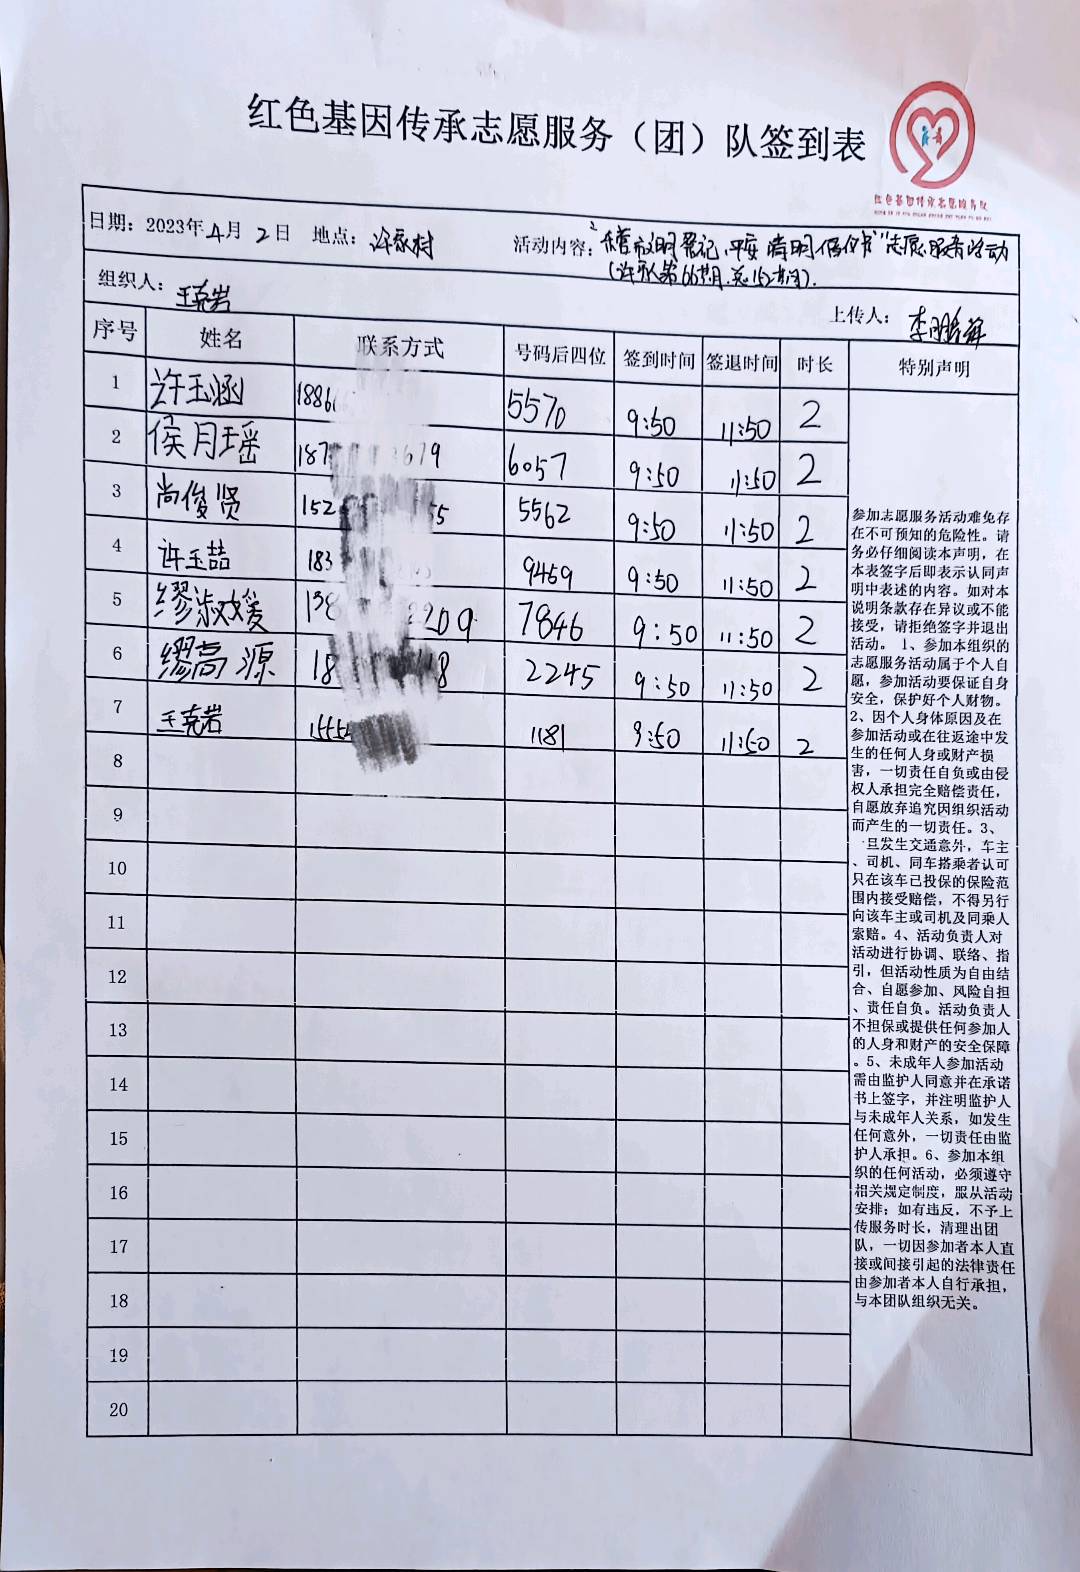 红色基因传承志愿服务（团）队签到表
红色基因传承志愿服务队
日期：2023年4月2日 地点：许家村 活动内容：
志愿服务活动
组织人：王克岩 上传人：
序号 姓名 联系方式 号码后四位 签到时间 签退时间 时长 特别声明
1 许玉涵 5570 9:50 11:50 2
2 侯月瑶 6057 9:50 11:50 2
3 尚俊贤 5562 9:50 11:50 2
4 许玉喆 9469 9:50 11:50 2
5 缪淑媛 7846 9:50 11:50 2
6 缪高源 2245 9:50 11:50 2
7 王克岩 1181 9:50 11:50 2
8
9
10
11
12
13
14
15
16
17
18
19
20
参加志愿服务活动难免存
在不可预知的危险性。请
务必仔细阅读本声明，在
本表签字后即表示认同声
明中表述的内容。如对本
说明条款存在异议或不能
接受，请拒绝签字并退出
活动。 1、参加本组织的
志愿服务活动属于个人自
愿，参加活动要保证自身
安全，保护好个人财物。
2、因个人身体原因及在
参加活动或在往返途中发
生的任何人身或财产损
害，一切责任自负或由侵
权人承担完全赔偿责任，
自愿放弃追究因组织活动
而产生的一切责任。3、
旦发生交通意外，车主
、司机、同车搭乘者认可
只在该车已投保的保险范
围内接受赔偿，不得另行
向该车主或司机及同乘人
索赔。4、活动负责人对
活动进行协调、联络、指
引，但活动性质为自由结
合、自愿参加、风险自担
、责任自负。活动负责人
不担保或提供任何参加人
的人身和财产的安全保障
。5、未成年人参加活动
需由监护人同意并在承诺
书上签字，并注明监护人
与未成年人关系，如发生
任何意外，一切责任由监
护人承担。6、参加本组
织的任何活动，必须遵守
相关规定制度，服从活动
安排；如有违反，不予上
传服务时长，清理出团
队，一切因参加者本人直
接或间接引起的法律责任
由参加者本人自行承担，
与本团队组织无关。